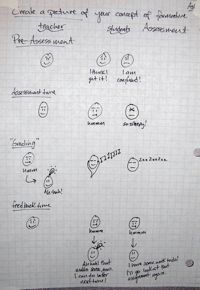 Create a picture of your concept of formative
teacher students Assessment
Pre-Assessment
I think I got it! I am confused!
Assessment time
hmmm so sleepy!
"Grading"
Hmmm
Ah hah!
Feedback time
hmmm hmmm
Ah hah! that makes sense, now I can do better next time!
I have some work to do! to go look at that assignment again.